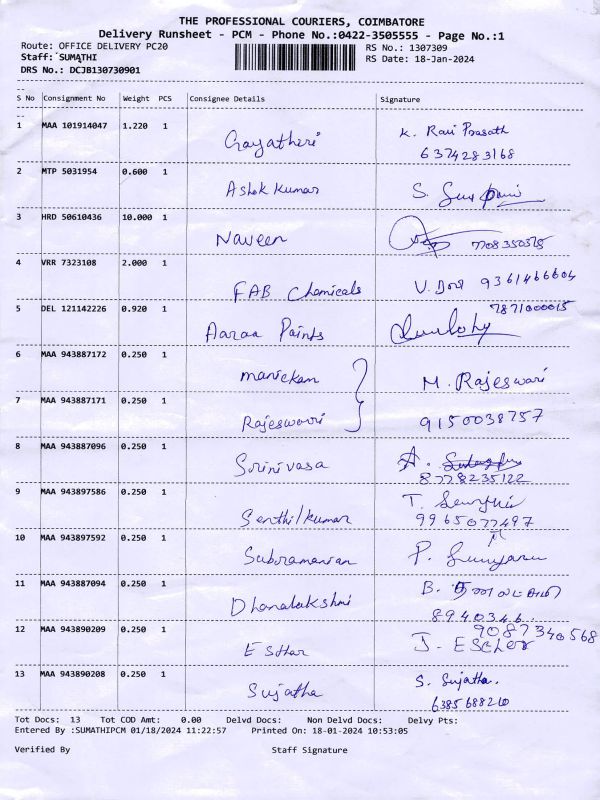 THE PROFESSIONAL COURIERS, COIMBATORE
Delivery Runsheet - PCM - Phone No.:0422-3505555 - Page No.:1
Route: OFFICE DELIVERY PC20 RS No.: 1307309
Staff: SUMATHI RS Date: 18-Jan-2024
DRS No.: DCJB130730901
S No Consignment No Weight PCS Consignee Details Signature
1 MAA 101914047 1.220 1 Gayathiri K. Ravi Prasath
6374283168
2 MTP 5031954 0.600 1 Ashok Kumar S.
3 HRD 50610436 10.000 1 Naveen 7708350315
4 VRR 7323108 2.000 1 FAB Chemicals V. 9361466604
5 DEL 121142226 0.920 1 Aaraa Paints 7871000015
6 MAA 943887172 0.250 1 Manickam M. Rajeswari
7 MAA 943887171 0.250 1 Rajeswari 9150038757
8 MAA 943887096 0.250 1 Srinivasa A.
8778235122
9 MAA 943897586 0.250 1 Senthilkumar T.
9965077497
10 MAA 943897592 0.250 1 Subramanian P.
11 MAA 943887094 0.250 1 Dhanalakshmi B.
8940346..
12 MAA 943890209 0.250 1 Esthar 9087340568
J. Esther
13 MAA 943890208 0.250 1 Sujatha S. Sujatha.
6385688210
Tot Docs: 13 Tot COD Amt: 0.00 Delvd Docs: Non Delvd Docs: Delvy Pts:
Entered By :SUMATHIPCM 01/18/2024 11:22:57 Printed On: 18-01-2024 10:53:05
Verified By Staff Signature